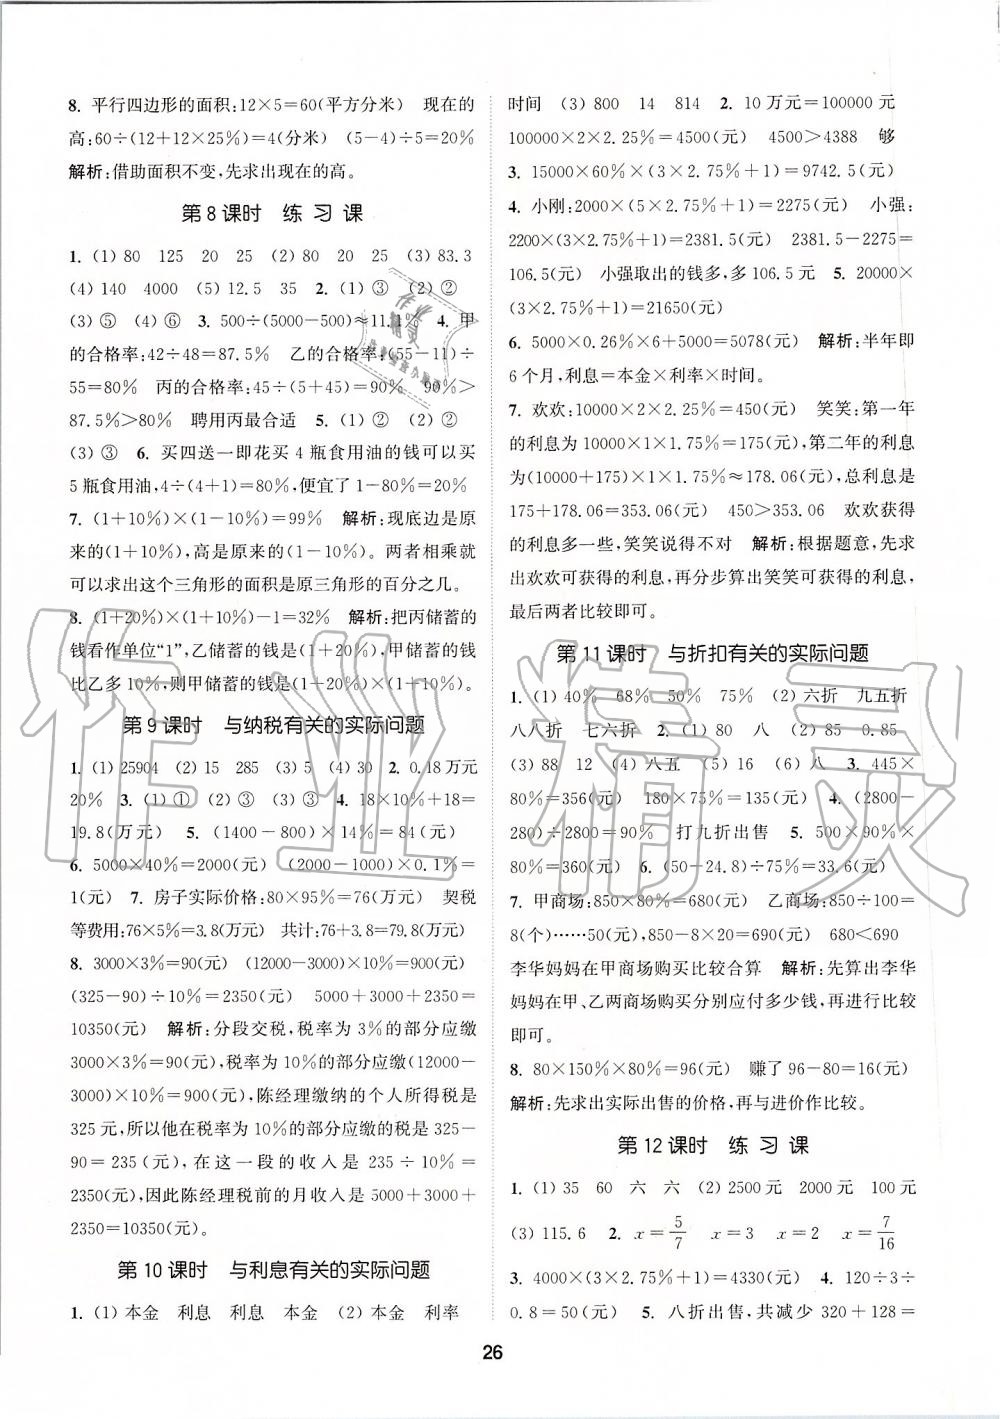 8. 平行四边形的面积:12×5=60(平方分米)　现在的
高:60÷(12+12×25%)=4(分米)　(5-4)÷5=20%
解析:借助面积不变,先求出现在的高。
第 8 课时　练 习 课
1. (1) 80　125　20　25　(2) 80　20　25　(3) 83.3
(4) 140　4000　(5) 12.5　35　2. (1) ③　(2) ②
(3) ⑤　(4) ⑥　3. 500÷(5000-500)≈11.1%　4. 甲
的合格率:42÷48=87.5%　乙的合格率:(55-11)÷
55=80%　丙的合格率:45÷(5+45)=90%　90%>
87.5%>80%　聘用丙最合适　5. (1) ②　(2) ②
(3) ③　6. 买四送一即花买 4 瓶食用油的钱可以买
5 瓶食用油,4÷(4+1)=80%,便宜了 1-80%=20%
7. (1+10%)×(1-10%)=99%　解析:现底边是原
来的(1+10%),高是原来的(1-10%)。两者相乘就
可以求出这个三角形的面积是原三角形的百分之几。
8. (1+20%)×(1+10%)-1=32%　解析:把丙储蓄的
钱看作单位“1”,乙储蓄的钱是(1+20%),甲储蓄的钱
比乙多 10%,则甲储蓄的钱是(1+20%)×(1+10%)。
第 9 课时　与纳税有关的实际问题
1. (1) 25904　(2) 15　285　(3) 5　(4) 30　2. 0.18万元
20%　3. (1) ①　(2) ③　(3) ③　4. 18×10%+18=
19.8(万元)　5. (1400-800)×14%=84(元)
6. 5000×40%=2000(元)　(2000-1000)×0.1%=
1(元)　7. 房子实际价格:80×95%=76(万元)　契税
等费用:76×5%=3.8(万元)　共计:76+3.8=79.8(万元)
8. 3000×3%=90(元)　(12000-3000)×10%=900(元)
(325-90)÷10%=2350(元)　5000+3000+2350=
10350(元)　解析:分段交税,税率为 3%的部分应缴
3000×3%=90(元),税率为 10%的部分应缴(12000-
3000)×10%=900(元),陈经理缴纳的个人所得税是
325 元,所以他在税率为 10%的部分应缴的税是 325-
90=235(元),在这一段的收入是 235÷10%=
2350(元),因此陈经理税前的月收入是 5000+3000+
2350=10350(元)。
第 10 课时　与利息有关的实际问题
1. (1) 本金　利息　利息　本金　(2) 本金　利率
时间　(3) 800　14　814　2. 10 万元=100000 元
100000×2×2.25%=4500(元)　4500>4388　够
3. 15000×60%×(3×2.75%+1)=9742.5(元)
4. 小刚:2000×(5×2.75%+1)=2275(元)　小强:
2200×(3×2.75%+1)=2381.5(元)　2381.5-2275=
106.5(元)　小强取出的钱多,多 106.5 元　5. 20000×
(3×2.75%+1)=21650(元)
6. 5000×0.26%×6+5000=5078(元)　解析:半年即
6 个月,利息=本金×利率×时间。
7. 欢欢:10000×2×2.25%=450(元)　笑笑:第一年
的利息为 10000×1×1.75%=175(元),第二年的利息
为(10000+175)×1×1.75%≈178.06(元),总利息是
175+178.06=353.06(元)　450>353.06　欢欢获得
的利息多一些,笑笑说得不对　解析:根据题意,先求
出欢欢可获得的利息,再分步算出笑笑可获得的利息,
最后两者比较即可。
第 11 课时　与折扣有关的实际问题
1. (1) 40%　68%　50%　75%　(2) 六折　九五折
八八折　七六折　2. (1) 80　八　(2) 85　0.85
(3) 88　12　(4) 八五　(5) 16　(6) 八　3. 445×
80%=356(元)　180×75%=135(元)　4. (2800-
280)÷2800=90%　打九折出售　5. 500×90%×
80%=360(元)　6. (50-24.8)÷75%=33.6(元)
7. 甲商场:850×80%=680(元)　乙商场:850÷100=
8(个)……50(元),850-8×20=690(元)　680<690
李华妈妈在甲商场购买比较合算　解析:先算出李华
妈妈在甲、乙两商场购买分别应付多少钱,再进行比较
即可。
8. 80×150%×80%=96(元)　赚了 96-80=16(元)
解析:先求出实际出售的价格,再与进价作比较。
第 12 课时　练 习 课
1. (1) 35　60　六　六　(2) 2500 元　2000 元　100元
(3) 115.6　2. x=5/7　x=3　x=2　x=7/16
3. 4000×(3×2.75%+1)=4330(元)　4. 120÷3÷
0.8=50(元)　5. 八折出售,共减少 320+128=
26
作业精灵